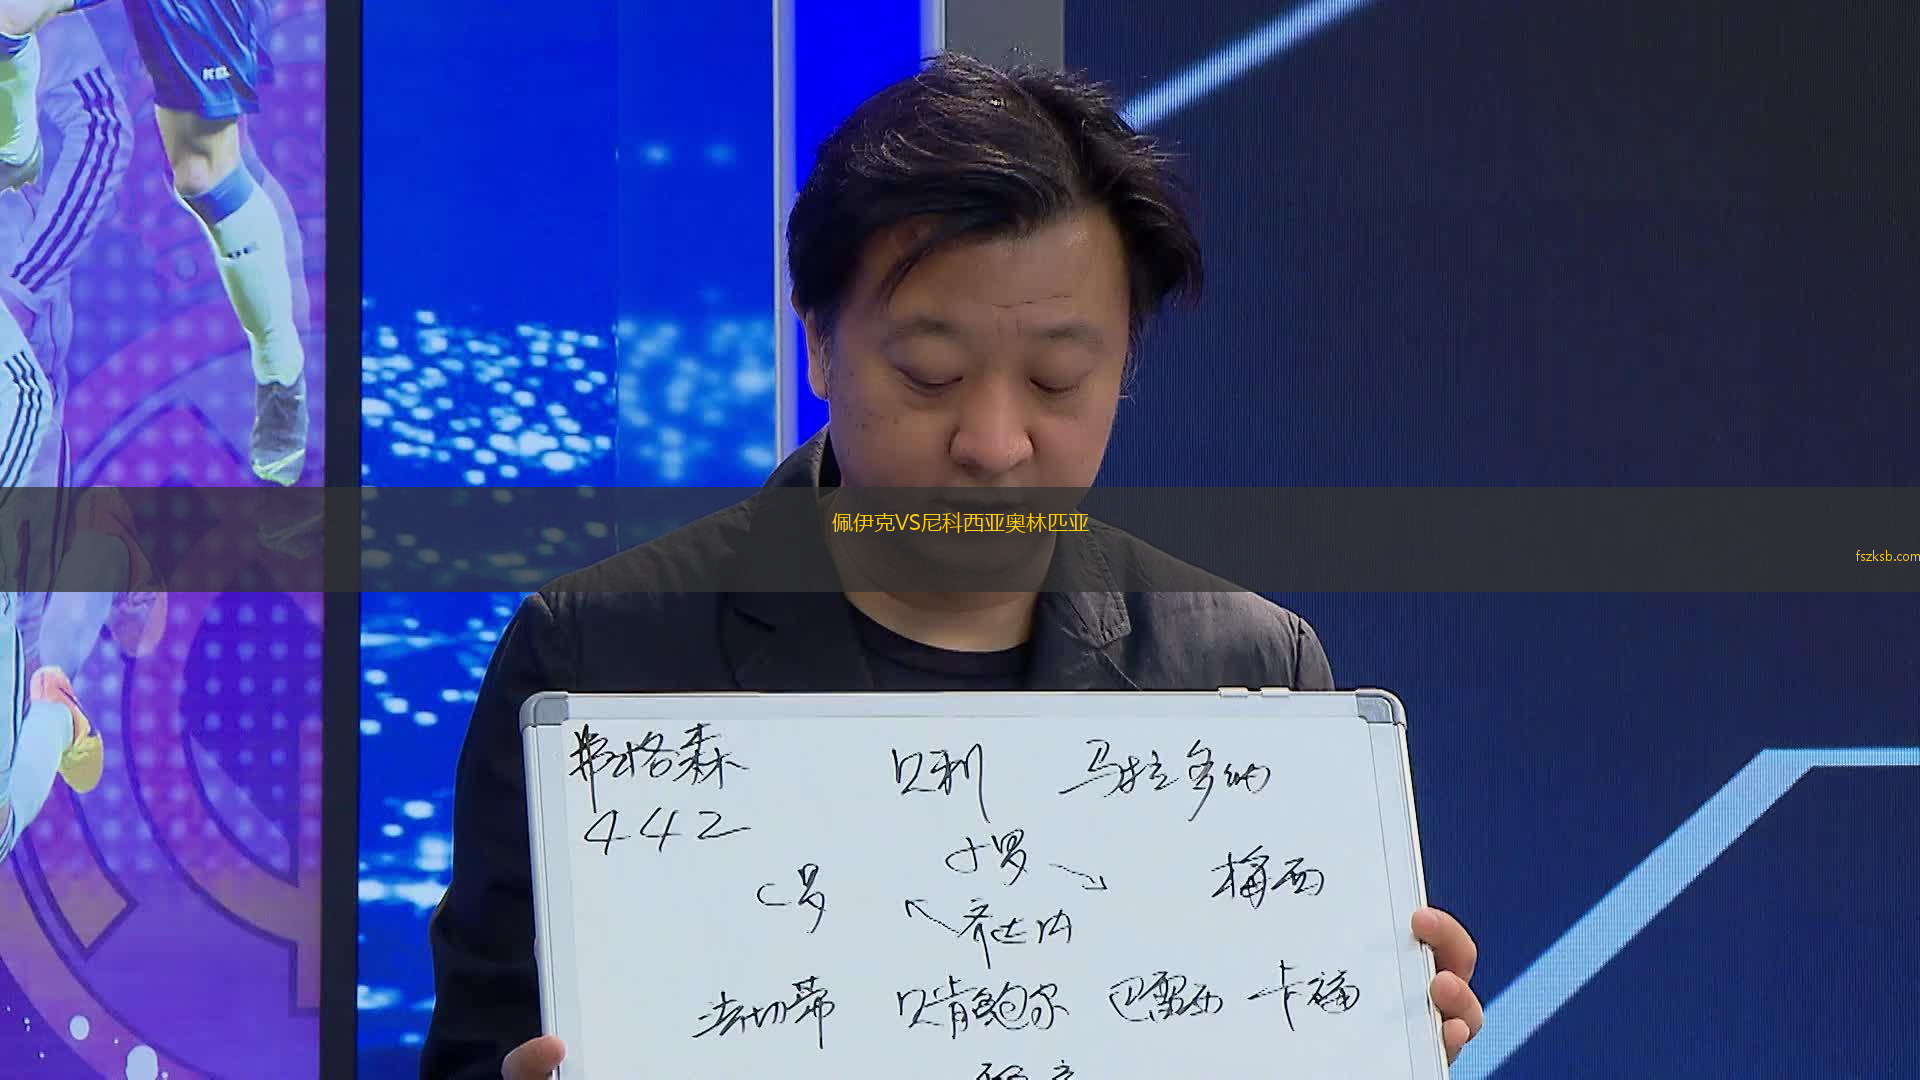 KEL
佩伊克VS尼科西亚奥林匹亚
fszksb.com
弗格森 贝利 马拉多纳
442
小罗
C罗 梅西
齐达内
法切蒂 贝肯鲍尔 巴雷西 卡福